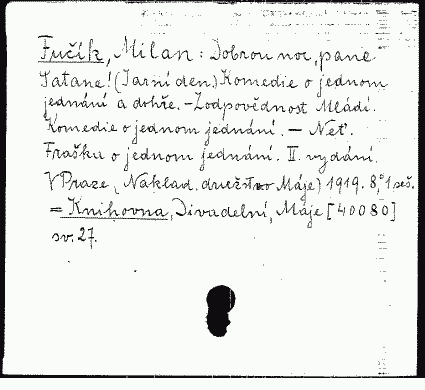 Fučík, Milan: Dobrou noc, pane
Satane! (Jarní den.) Komedie o jednom
jednání a dohře. – Zodpovědnost Mládí.
Komedie o jednom jednání. – Neť.
Fraška o jednom jednání. II. vydání.
V Praze, (Naklad. družstvo Máje) 1919. 8.° 1 seš.
= Knihovna, Divadelní, Máje [40080]
sv. 27.